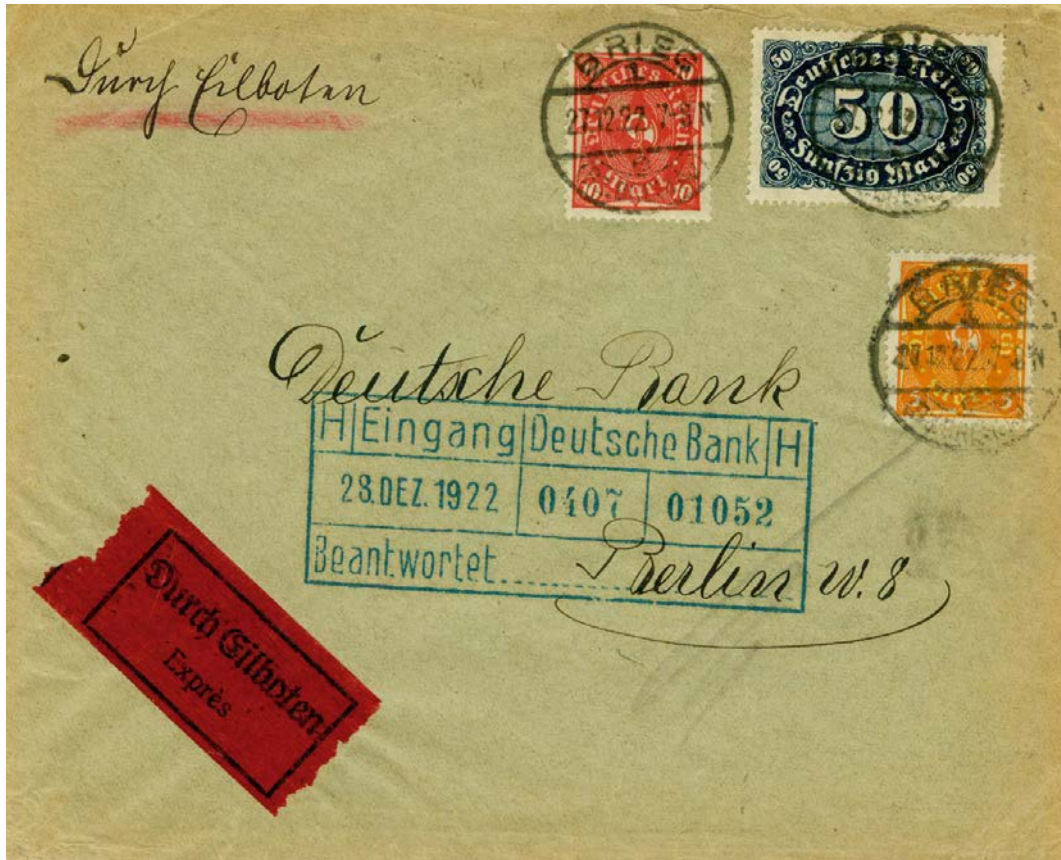 Durch Eilboten
BRIEG
1
27.12.22. 7-8 N
Deutsches Reich
10 Mark 10
50 50
Deutsches Reich
50
Fünfzig Mark
50 50
BRIEG
27.12.22. 7-8 N
5 5
Deutsche Bank
H Eingang Deutsche Bank H
28.DEZ.1922 0407 01052
Beantwortet..........
Berlin W. 8
Durch Eilboten
Exprès